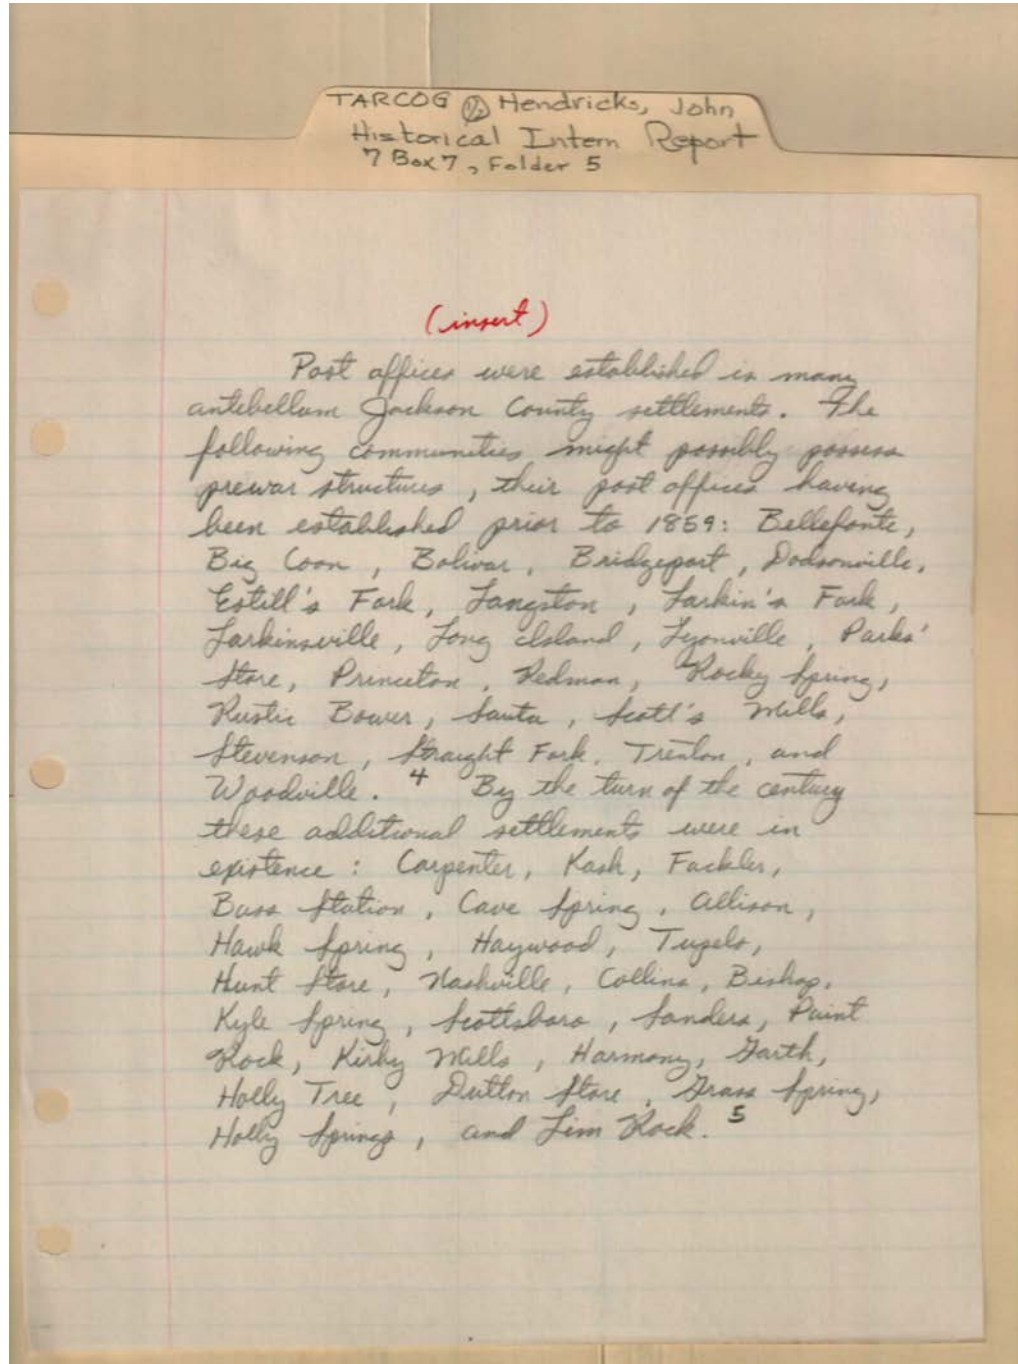 TARCOG 1/2 Hendricks, John
Historical Intern Report
7 Box 7, Folder 5
(insert)
Post offices were established in many
antebellum Jackson County settlements. The
following communities might possibly possess
prewar structures, their post offices having
been established prior to 1859: Bellefonte,
Big Coon, Bolivar, Bridgeport, Dodsonville,
Estill's Fork, Langston, Larkin's Fork,
Larkinsville, Long Island, Lyonville, Parks'
Store, Princeton, Redman, Rocky Spring,
Rustic Bower, Santa, Scott's Mills,
Stevenson, Straight Fork, Trenton, and
Woodville. 4 By the turn of the century
these additional settlements were in
existence: Carpenter, Kash, Fackler,
Bass Station, Cave Spring, Allison,
Hawk Spring, Haywood, Tupelo,
Hunt Store, Nashville, Collins, Bishop,
Kyle Spring, Scottsboro, Sanders, Paint
Rock, Kirby Mills, Harmony, Garth,
Holly Tree, Dutton Store, Grass Spring,
Holly Springs, and Lim Rock. 5